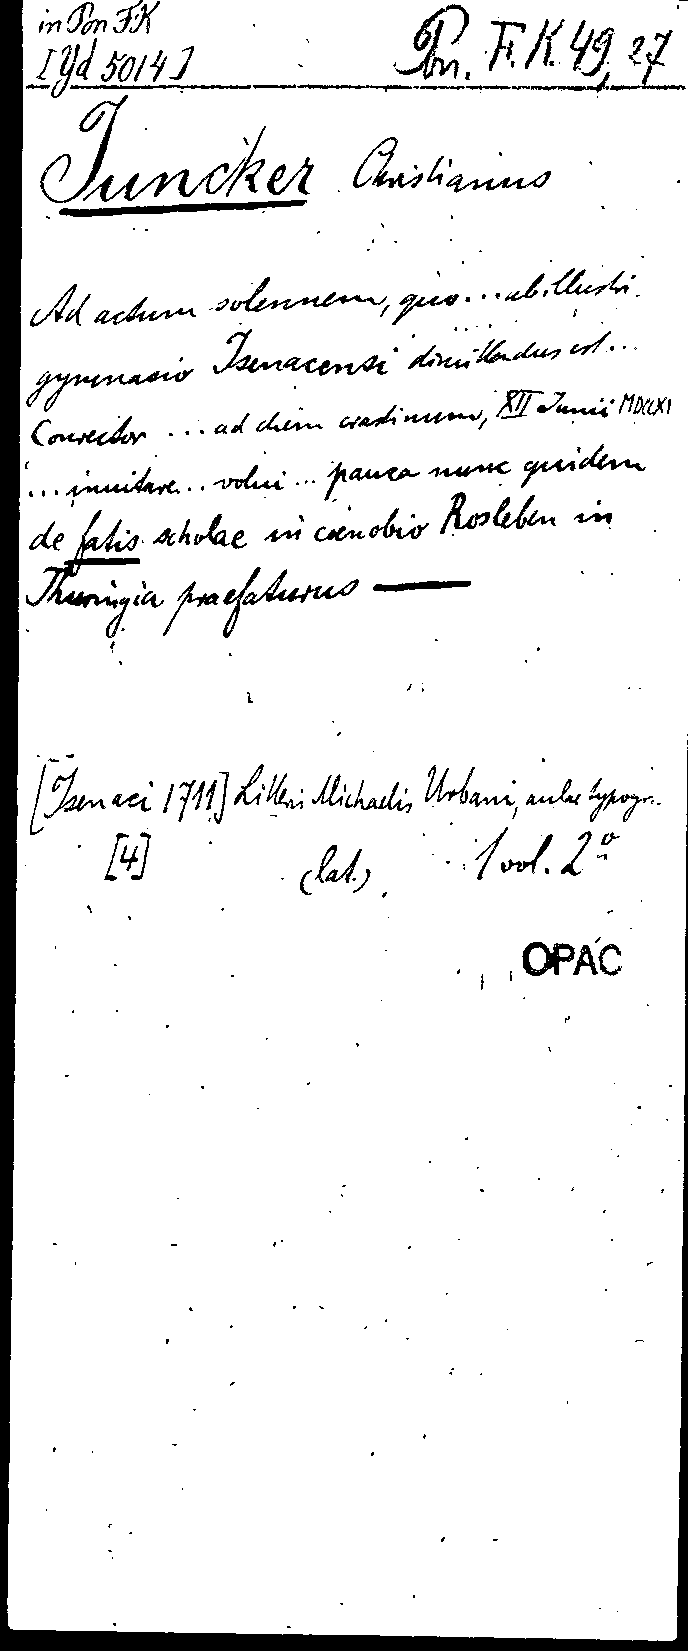 in Pon F.K
[Yd 5014]
Pon. F. K. 49, 27
Juncker Christianus
Ad actum solennem, quo... ab illustri
gymnasio Isenacensi dimittendus est...
Conrector ... ad diem crastinum, XII Junii MDCCXI
... invitare... volui... pauca nunc quidem
de fatis scholae in coenobio Rosleben in
Thuringia praefaturus —
[Isenaci 1711] Litteris Michaelis Urbani, aulae typogr..
[4] (lat.) 1 vol. 2º
OPAC